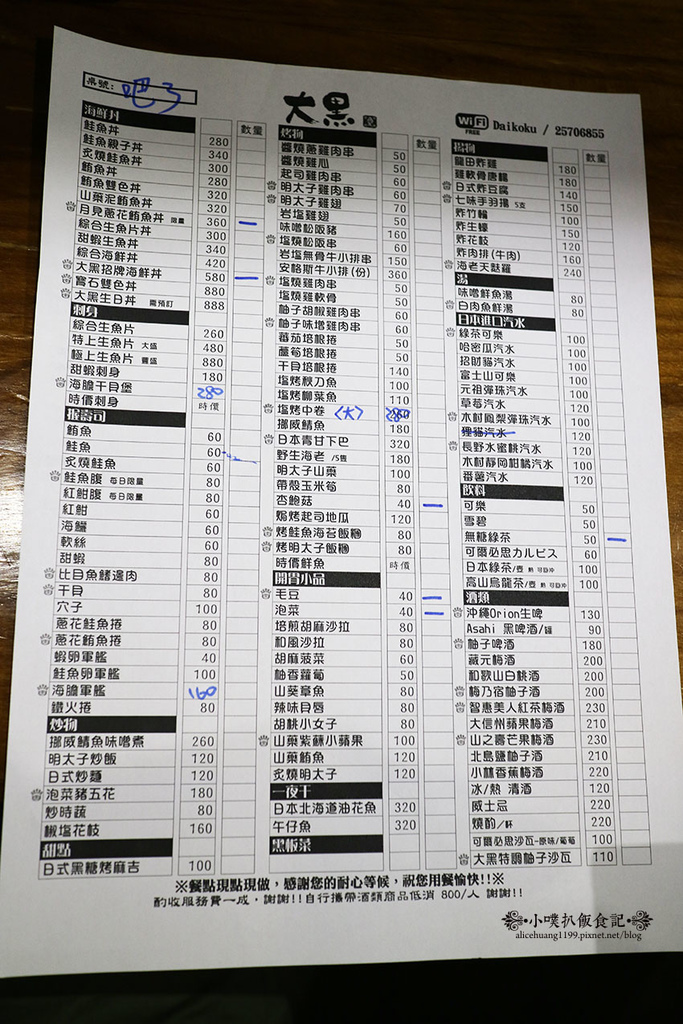 桌號: 吧3
大黑
WiFi FREE Daikoku / 25706855
海鮮丼 數量
鮭魚丼 280
鮭魚親子丼 340
炙燒鮭魚丼 300
鮪魚丼 280
鮪魚雙色丼 320
山藥泥鮪魚丼 320
月見蔥花鮪魚丼 限量 360
綜合生魚片丼 300
甜蝦生魚丼 340
綜合海鮮丼 420
大黑招牌海鮮丼 580
寶石雙色丼 880
大黑生日丼 需預訂 888
刺身
綜合生魚片 260
特上生魚片 大盛 480
極上生魚片 豐盛 880
甜蝦刺身 180
海膽干貝堡 280
時價刺身 時價
握壽司
鮪魚 60
鮭魚 60
炙燒鮭魚 80
鮭魚腹 每日限量 80
紅魽腹 每日限量 80
紅魽 60
海鱺 60
軟絲 60
甜蝦 80
比目魚鰭邊肉 80
干貝 80
穴子 100
蔥花鮭魚捲 80
蔥花鮪魚捲 80
蝦卵軍艦 40
鮭魚卵軍艦 100
海膽軍艦 160
鐵火捲 80
炒物
挪威鯖魚味噌煮 260
明太子炒飯 120
日式炒麵 120
泡菜豬五花 180
炒時蔬 80
椒塩花枝 160
甜點
日式黑糖烤麻吉 100
烤物 數量
醬燒蔥雞肉串 50
醬燒雞心 50
起司雞肉串 60
明太子雞肉串 60
明太子雞翅 70
岩塩雞翅 50
味噌松阪豬 160
塩燒松阪串 60
岩塩無骨牛小排串 150
安格斯牛小排(份) 360
塩燒雞肉串 50
塩燒雞軟骨 50
柚子胡椒雞肉串 60
柚子味噌雞肉串 60
番茄培根捲 50
蘆筍培根捲 50
干貝培根捲 140
塩烤秋刀魚 100
塩烤柳葉魚 110
塩烤中卷 <大> 280
挪威鯖魚 180
日本青甘下巴 320
野生海老 /5隻 180
明太子山藥 100
帶殼玉米筍 80
杏鮑菇 40
焗烤起司地瓜 120
烤鮭魚海苔飯糰 80
烤明太子飯糰 80
時價鮮魚 時價
開胃小品
毛豆 40
泡菜 40
焙煎胡麻沙拉 80
和風沙拉 80
胡麻菠菜 60
柚香蘿蔔 50
山葵章魚 80
辣味貝唇 80
胡桃小女子 80
山藥紫蘇小蘋果 100
山藥鮪魚 120
炙燒明太子 120
一夜干
日本北海道油花魚 320
午仔魚 320
黑板菜
揚物 數量
龍田炸雞 180
雞軟骨唐揚 180
日式炸豆腐 140
七味手羽揚 5支 150
炸竹輪 100
炸生蠔 150
炸花枝 120
炸肉排(牛肉) 160
海老天麩羅 240
湯
味噌鮮魚湯 80
白肉魚鮮湯 80
日本進口汽水
綠茶可樂 100
哈密瓜汽水 100
招財貓汽水 100
富士山可樂 100
元祖彈珠汽水 100
草莓汽水 120
木村鳳梨彈珠汽水 100
狸貓汽水 120
長野水蜜桃汽水 120
木村靜岡柑橘汽水 100
番薯汽水 120
飲料
可樂 50
雪碧 50
無糖綠茶 50
可爾必思カルピス 60
日本綠茶/壺 熱 可回沖 100
高山烏龍茶/壺 熱 可回沖 100
酒類
沖繩Orion生啤 130
Asahi 黑啤酒/罐 90
柚子啤酒 180
藏元梅酒 200
和歌山白桃酒 200
梅乃宿柚子酒 200
智惠美人紅茶梅酒 230
大信州蘋果梅酒 210
山之壽芒果梅酒 230
北島鹽柚子酒 210
小林香蕉梅酒 220
冰/熱 清酒 120
威士忌 220
燒酌/杯 220
可爾必思沙瓦-原味/葡萄 100
大黑特調柚子沙瓦 110
※餐點現點現做，感謝您的耐心等候，祝您用餐愉快!!※
酌收服務費一成，謝謝!!自行攜帶酒類商品低消 800/人 謝謝!!
小噗扒飯食記
alicehuang1199.pixnet.net/blog